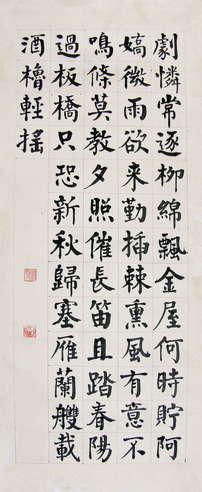 劇憐常逐柳綿飄金屋何時貯阿
嬌微雨欲來勤插棘熏風有意不
鳴條莫教夕照催長笛且踏春陽
過板橋只恐新秋歸塞雁蘭艭載
酒櫓輕搖